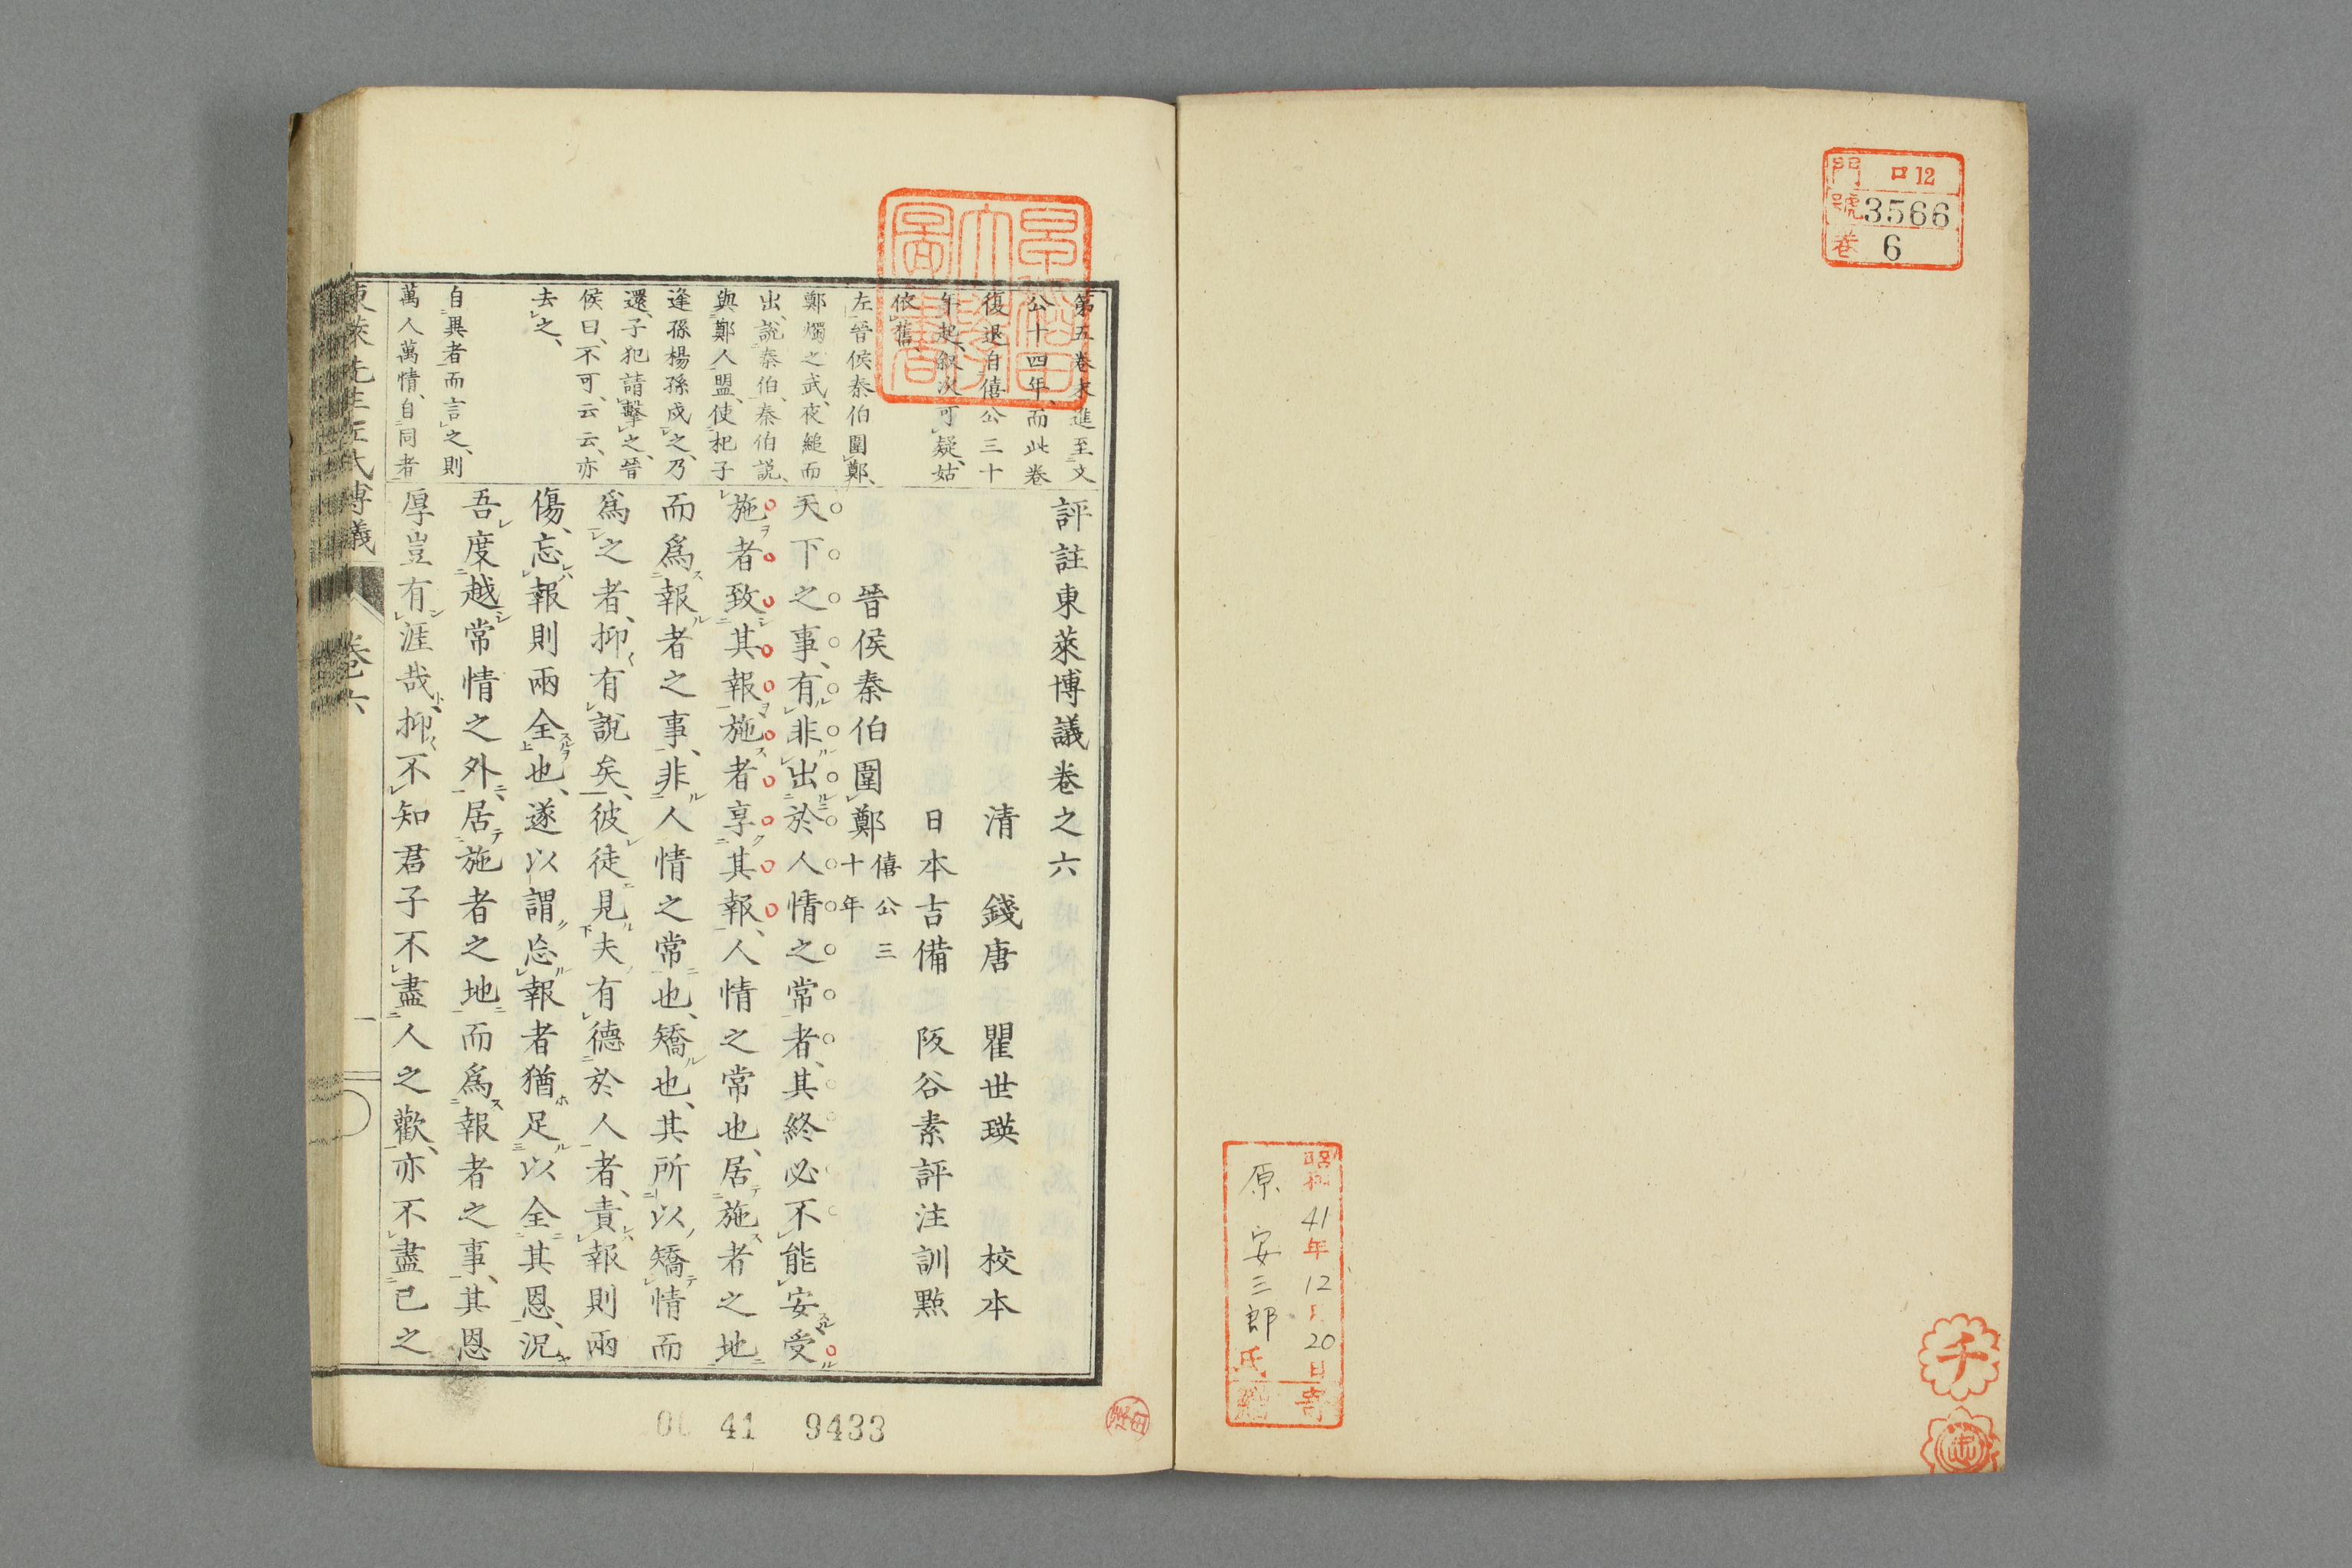 門 ロ12
號 3566
巻 6
昭和41年12月20日寄
原安三郎氏贈
千
早稲田
大學
圖書
第五卷末進至文
公十四年、而此卷
復退自僖公三十
年起、叙次可疑、姑
依舊、
左晉侯秦伯圍鄭、
鄭燭之武、夜縋而
出、說秦伯、秦伯説、
與鄭人盟、使杞子
逢孫楊孫戍之、乃
還、子犯請擊之、晉
侯曰、不可、云云、亦
去之、
自異者而言之、則
萬人萬情、自同者
評註東萊博議卷之六
清 錢唐 瞿世瑛 校本
日本吉備 阪谷素評注訓點
晉侯秦伯圍鄭 僖公三十年
天下之事、有非出於人情之常者、其終必不能安受
施者致其報、施者享其報、人情之常也、居施者之地
而爲報者之事、非人情之常也、矯也、其所以矯情而
爲之者、抑有說矣、彼徒見夫有德於人者、責報則兩
傷、忘報則兩全也、遂以謂忘報者猶足以全其恩、況
吾度越常情之外、居施者之地、而爲報者之事、其恩
厚豈有涯哉、抑不知君子不盡人之歡、亦不盡已之
東萊先生左氏博議 卷六 一
41 9433